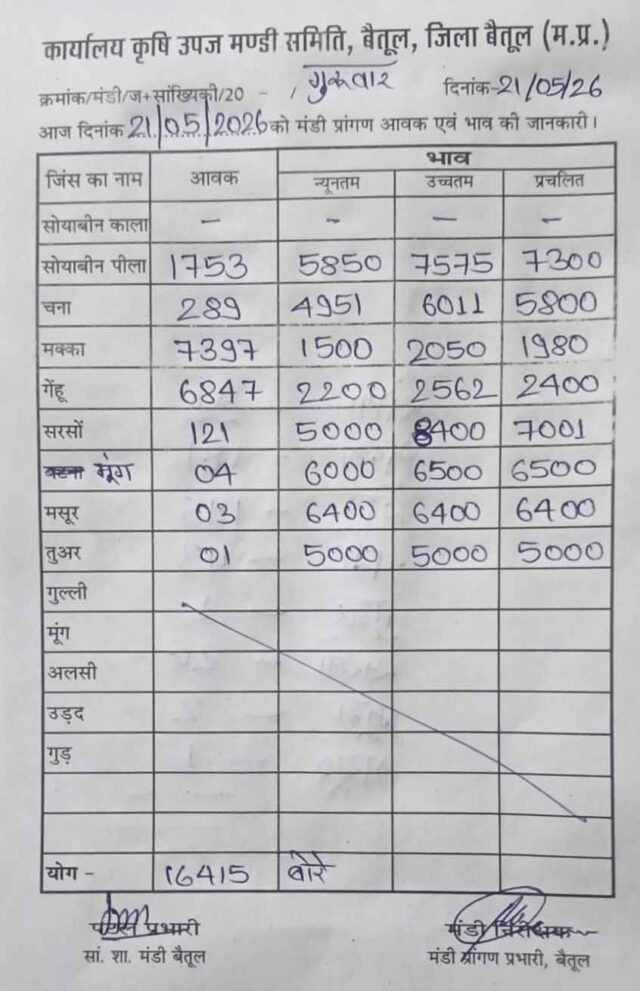 कार्यालय कृषि उपज मण्डी समिति, बैतूल, जिला बैतूल (म.प्र.)
क्रमांक/मंडी/ज+सांख्यिकी/20 - / गुरूवार दिनांक-21/05/26
आज दिनांक 21/05/2026 को मंडी प्रांगण आवक एवं भाव की जानकारी।
जिंस का नाम आवक भाव
न्यूनतम उच्चतम प्रचलित
सोयाबीन काला - - - -
सोयाबीन पीला 1753 5850 7575 7300
चना 289 4951 6011 5800
मक्का 7397 1500 2050 1980
गेंहू 6847 2200 2562 2400
सरसों 121 5000 8400 7001
मूंग 04 6000 6500 6500
मसूर 03 6400 6400 6400
तुअर 01 5000 5000 5000
गुल्ली
मूंग
अलसी
उड़द
गुड़
योग - 16415 बोरे
प्रभारी मंडी
सां. शा. मंडी बैतूल मंडी प्रांगण प्रभारी, बैतूल